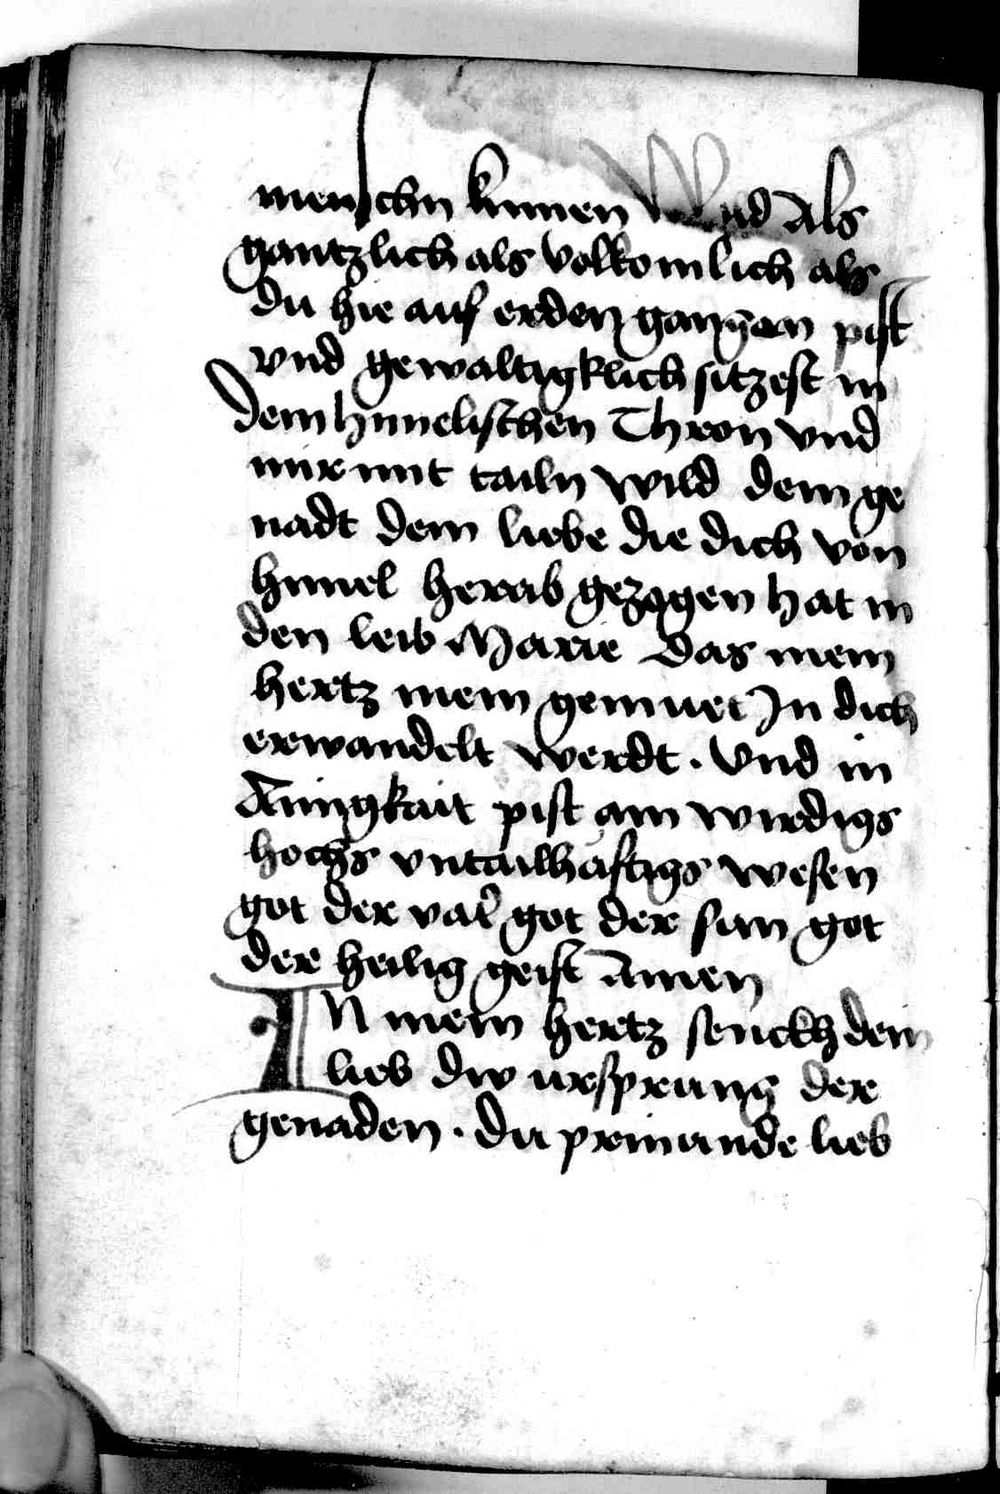 menschn kunnen Vnd Als
gantzlich als volkomlich als
du hie auf erden gangen pist
vnd gewaltigklich sitzest in
dem himelischen Thron vnd
mir mit tailn wild dein ge
nadt dein liebe die dich von
himel herab gezogen hat in
den leib Marie Das mein
hertz mein gemuet In dich
erwandelt werdt. Vnd in
Ainigkait pist ain wirdigs
hochs vntailhaftigs wesen
got der vat̉ got der sun got
der heilig geist Amen
IN mein hertz senckh dein
lieb dw ursprung der
genaden. Du prinunde lieb